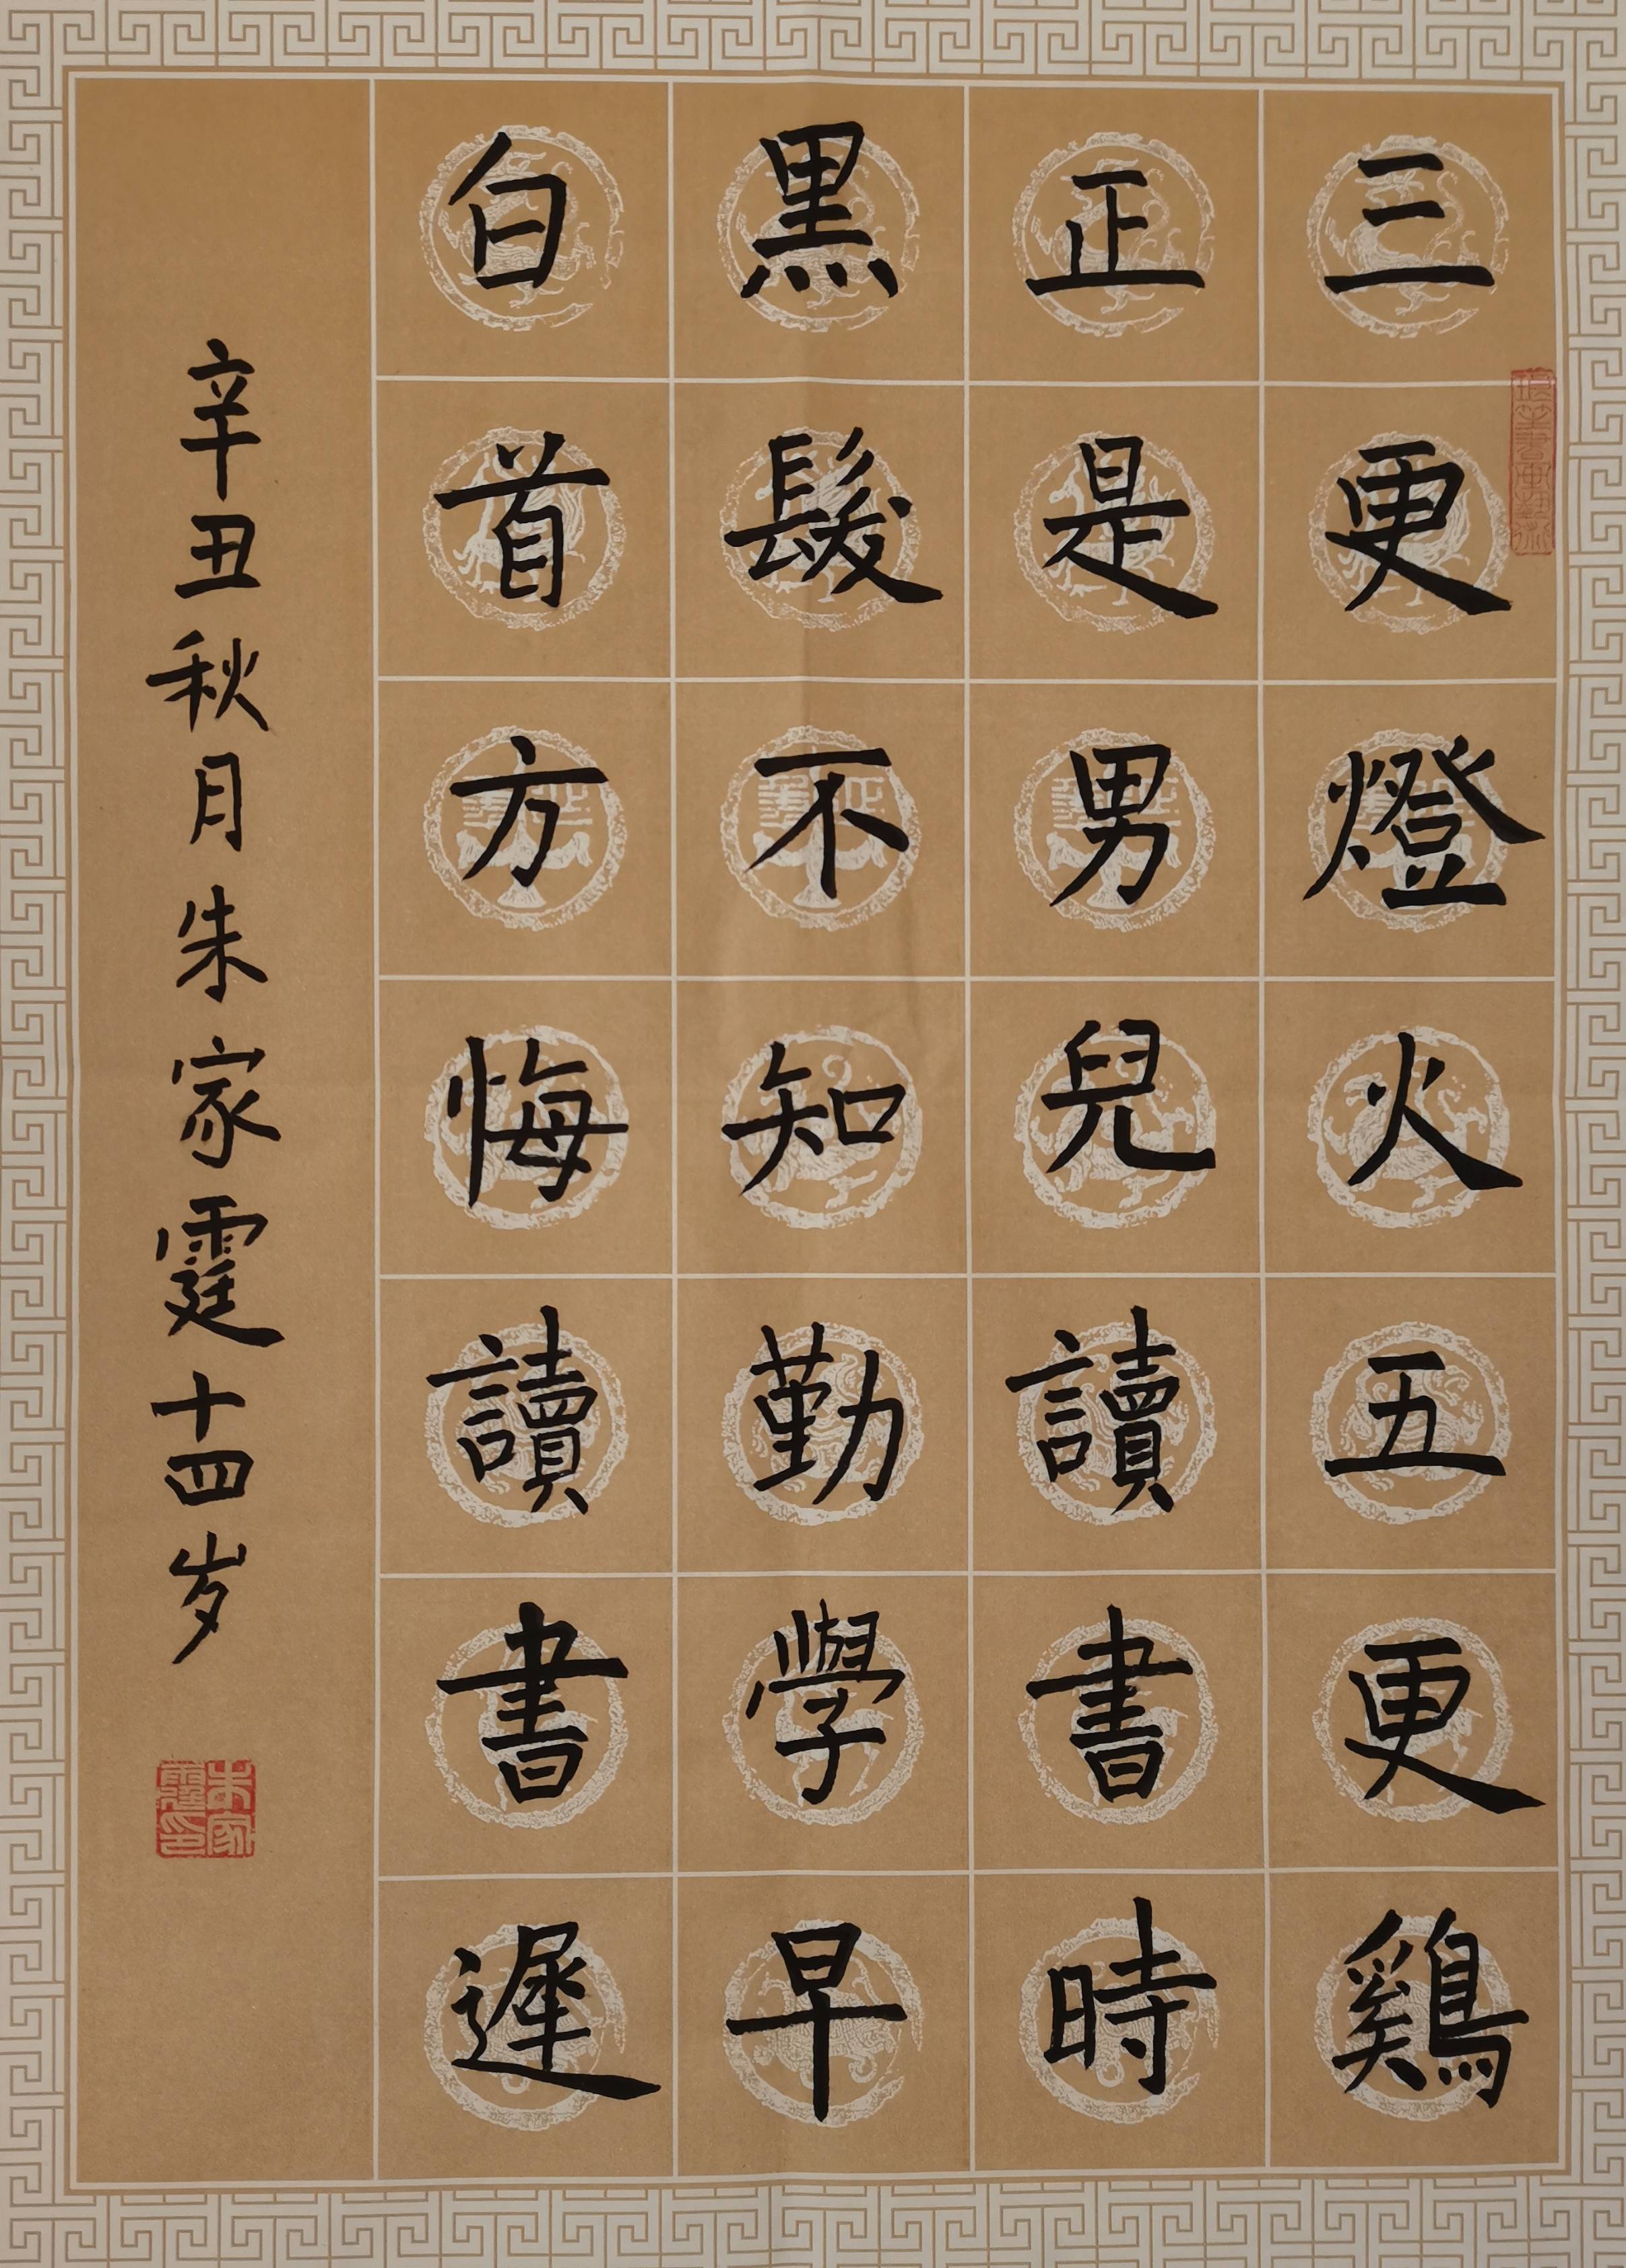 三更燈火五更鷄
正是男兒讀書時
黑髮不知勤學早
白首方悔讀書遲
辛丑秋月朱家霆十四岁
朱家霆印